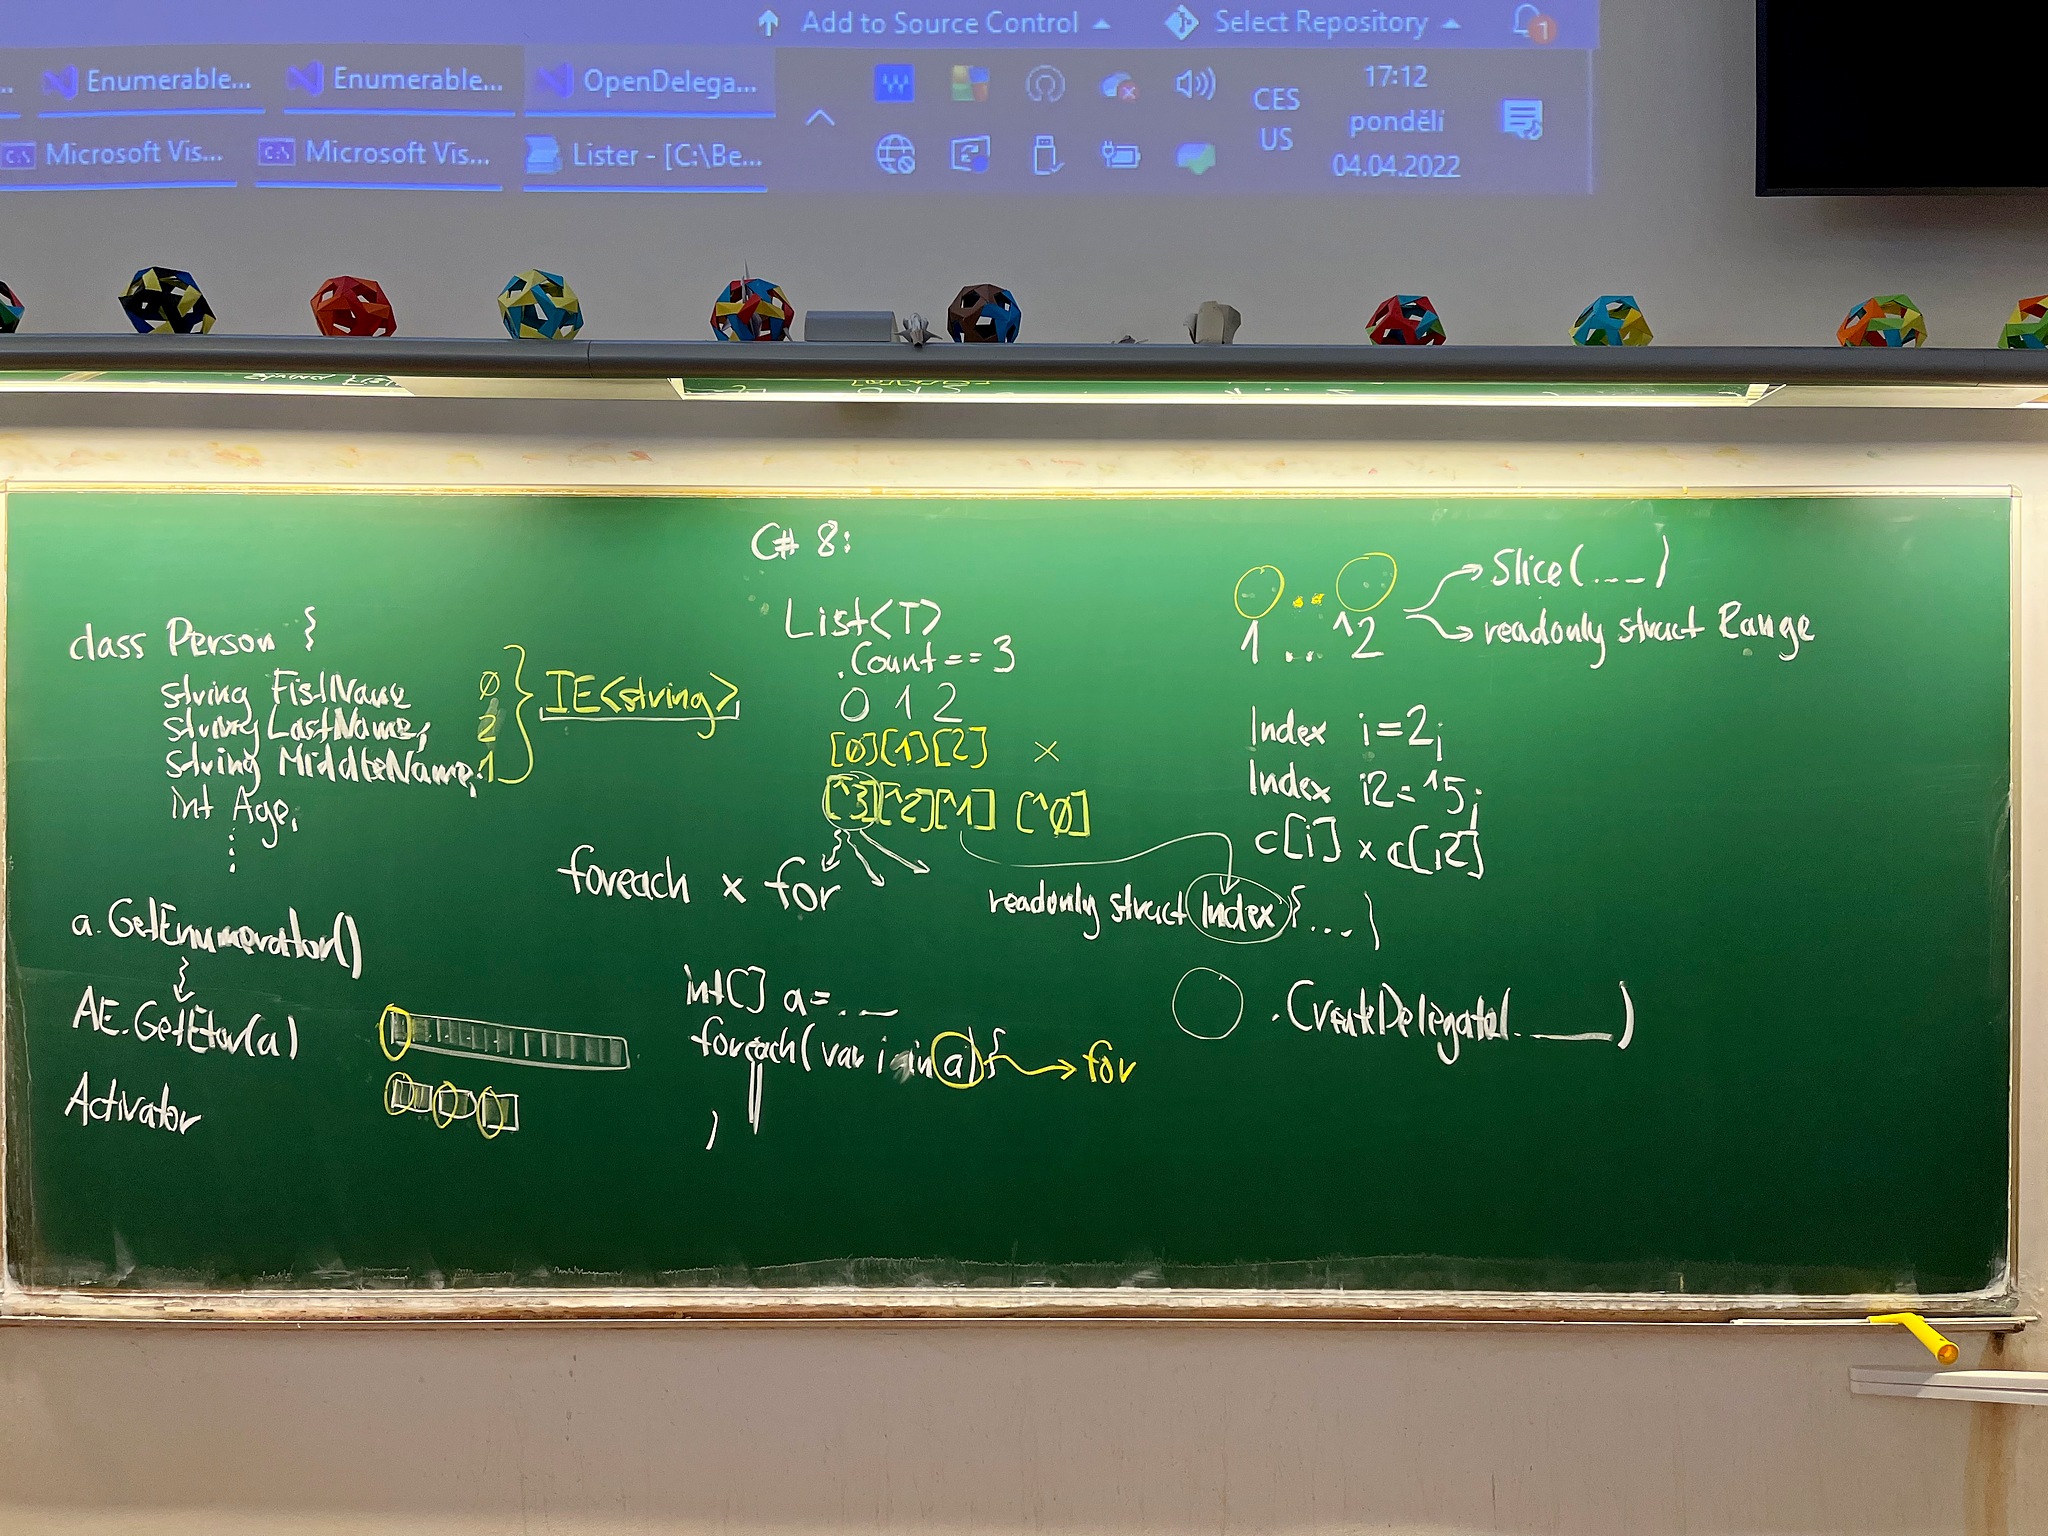 Add to Source Control
Select Repository
1
Enumerable...
Enumerable...
OpenDelega...
Microsoft Vis...
Microsoft Vis...
Lister - [C:\Be...
CES
US
17:12
pondělí
04.04.2022
class Person {
string FistName 0
string LastName; 2
string MiddleName; 1
int Age;
IE<string>
a.GetEnumerator()
AE.GetEtor(a)
Activator
C# 8:
List<T>
.Count == 3
0 1 2
[0][1][2] x
[^3][^2][^1] [^0]
foreach x for
readonly struct Index {...}
int[] a = ...
foreach(var i in a) { → for
}
1 .. ^2
Slice(...)
readonly struct Range
Index i=2;
Index i2=^5;
c[i] x c[i2]
.CreateDelegate(.___)